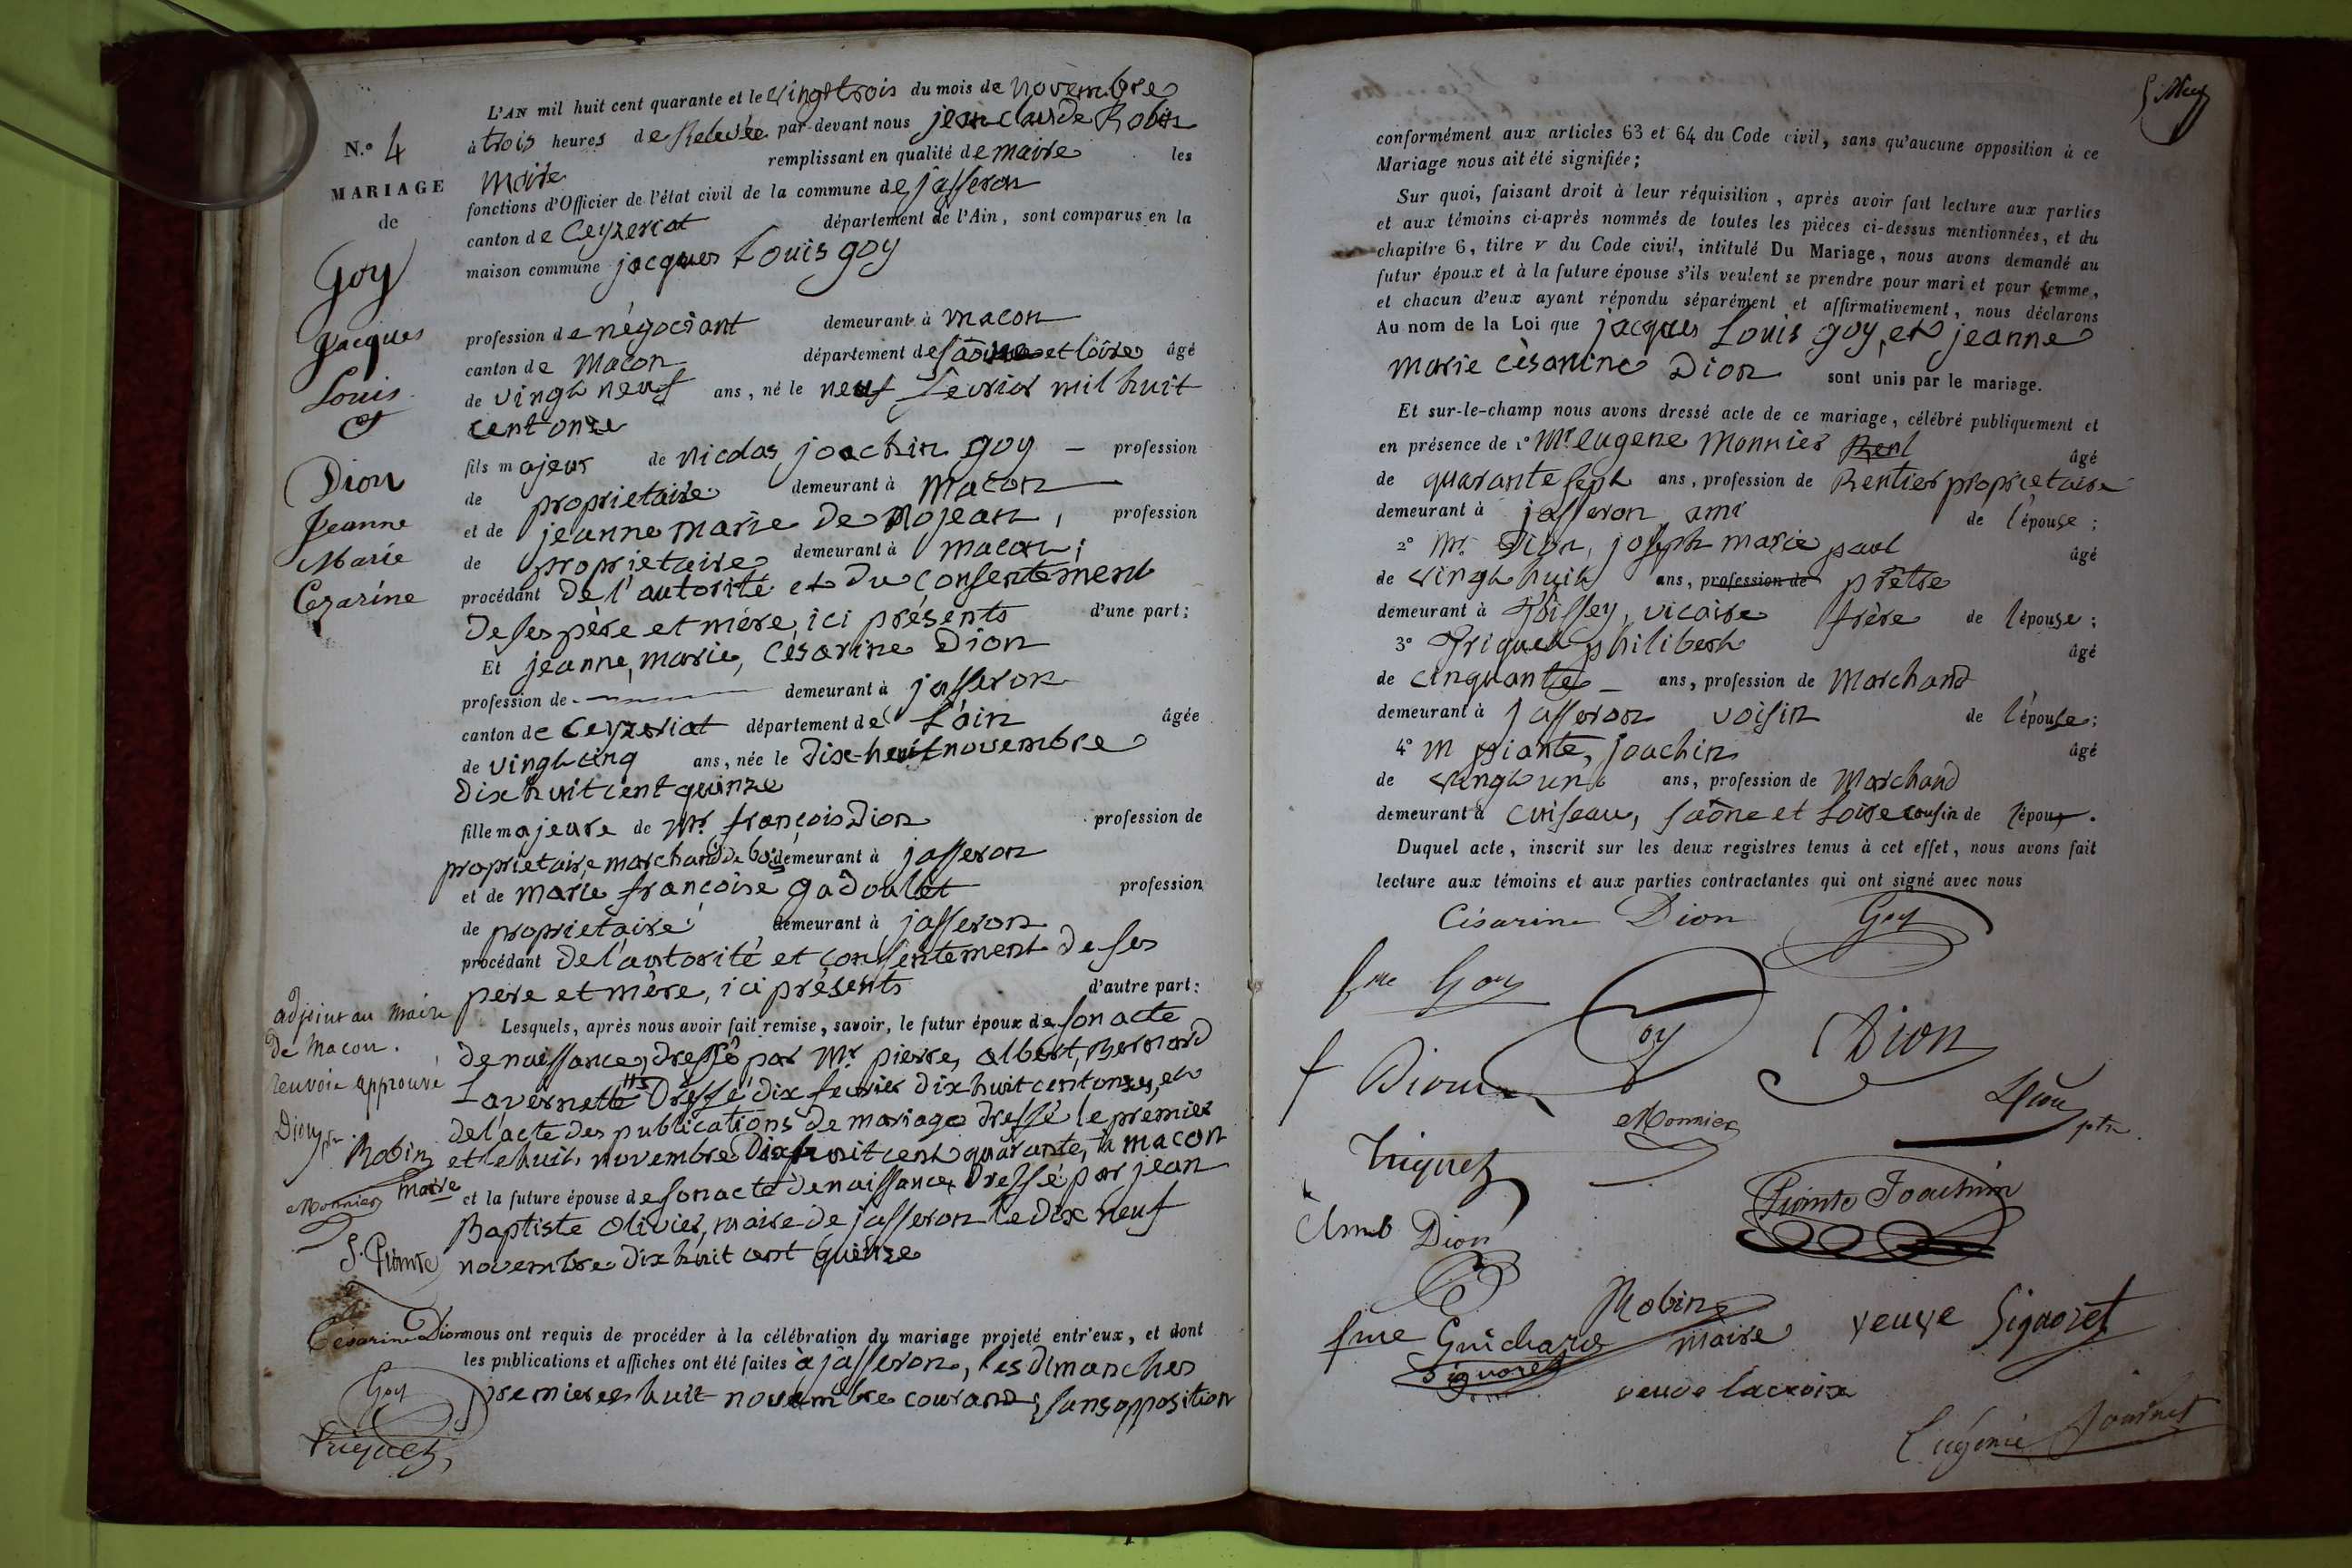 N.° 4
MARIAGE
de
Goy
Jacques
Louis
et
Dion
Jeanne
Marie
Cezarine
L'AN mil huit cent quarante et le vingt trois du mois de novembre
à trois heures de Relevée par-devant nous jean claude Robin
maire remplissant en qualité de maire les
fonctions d'Officier de l'état civil de la commune de jasseron
canton de Ceyzeriat département de l'Ain, sont comparus en la
maison commune jacques Louis goy
profession de négociant demeurant à macon
canton de Macon département de saône et Loire âgé
de vingt neuf ans, né le neuf fevrier mil huit
cent onze
fils majeur de nicolas joachin goy — profession
de proprietaire demeurant à macon
et de jeanne marie De Mojean, profession
de proprietaire demeurant à macon;
procédant De l'autorité et du consentement
de ses père et mère, ici présents d'une part;
Et jeanne, marie, Césarine Dion
profession de demeurant à jasseron
canton de Ceyzeriat département de L'ain âgée
de vingt cinq ans, née le Dix-huit novembre
Dix huit cent quinze
fille majeure de Mr. françois Dion profession de
proprietaire, marchand de bois demeurant à jasseron
et de marie françoise gadoulet profession
de proprietaire demeurant à jasseron
procédant De l'autorité et consentement de ses
père et mère, ici présents d'autre part:
Lesquels, après nous avoir fait remise, savoir, le futur époux de son acte
de naissance, dressé par Mr pierre, albert, Bernard
Lavernette Dressé dix fevrier dix huit cent onze, et
de l'acte des publications de mariage dressé le premier
et le huit novembre Dix huit cent quarante, à macon
et la future épouse de son acte de naissance Dressé par jean
Baptiste Olivier, maire de jasseron le dix neuf
novembre Dix huit cent quinze
nous ont requis de procéder à la célébration du mariage projeté entr'eux, et dont
les publications et affiches ont été faites à jasseron, les dimanches
premier et huit novembre courand; sans opposition
adjoint au maire
de Macon.
renvoie approuvé
Dion ptr.
Robin
maire
Monnier
J. Piante
Césarine Dion
Goy
Friquet
conformément aux articles 63 et 64 du Code civil, sans qu'aucune opposition à ce
Mariage nous ait été signifiée;
Sur quoi, faisant droit à leur réquisition, après avoir fait lecture aux parties
et aux témoins ci-après nommés de toutes les pièces ci-dessus mentionnées, et du
chapitre 6, titre v du Code civil, intitulé Du Mariage, nous avons demandé au
futur époux et à la future épouse s'ils veulent se prendre pour mari et pour femme,
et chacun d'eux ayant répondu séparément et affirmativement, nous déclarons
Au nom de la Loi que jacques Louis goy, et jeanne
marie Cèsarine Dion sont unis par le mariage.
Et sur-le-champ nous avons dressé acte de ce mariage, célébré publiquement et
en présence de 1° Mr. eugene Monnier Rent âgé
de quarante sept ans, profession de Rentier proprietaire
demeurant à jasseron ami de l'épouse;
2° Mr. Dion, joseph marie paul âgé
de vingt huit ans, profession de prêtre
demeurant à Thissey, vicaire frère de l'épouse;
3° Friquet philibert âgé
de cinquante — ans, profession de Marchand
demeurant à jasseron voisin de l'épouse;
4° m piante, joachin âgé
de vingt un ans, profession de Marchand
demeurant à cuiseau, saône et Loire cousin de l'époux.
Duquel acte, inscrit sur les deux registres tenus à cet effet, nous avons fait
lecture aux témoins et aux parties contractantes qui ont signé avec nous
Césarine Dion Goy
fme Goy
Goy
f Dion
Dion
Monnier
Dion ptr.
Friquet
Piante Joachim
Dion
Robin
maire
fme Guichard
Signoret
veuve Signoret
veuve lacroix
Eugénie